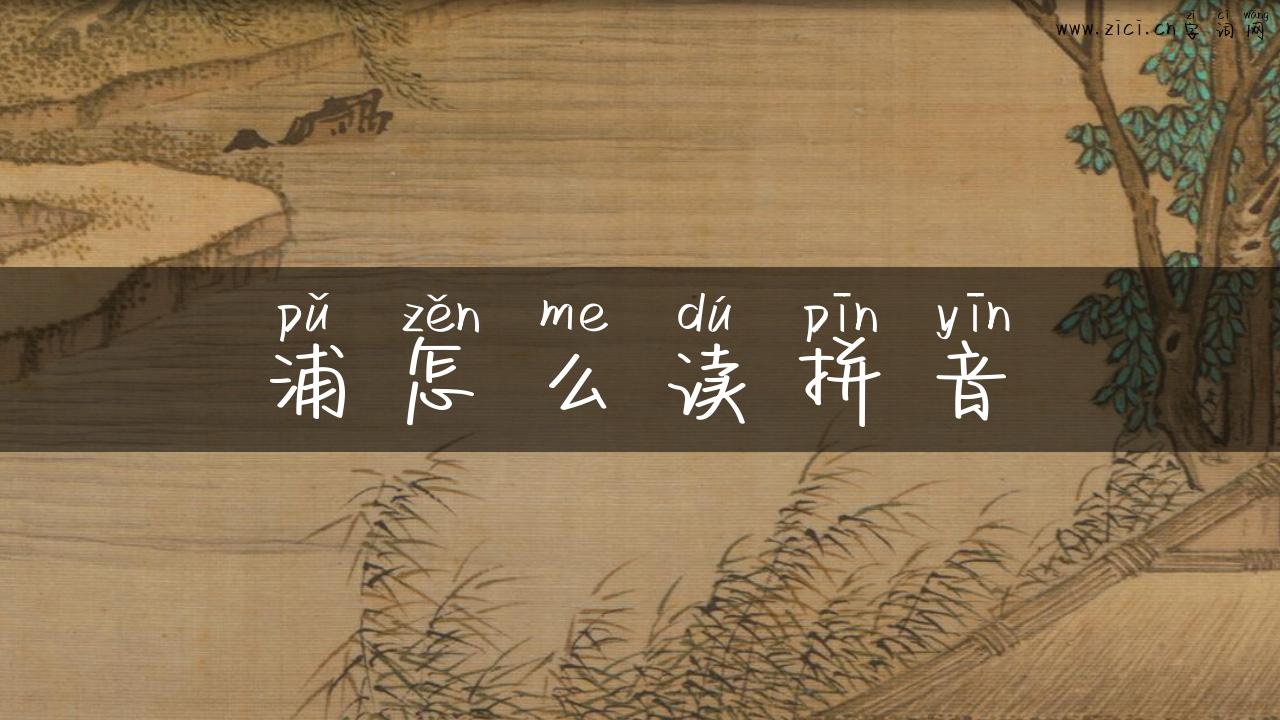 zì cí wǎng
www.zici.cn字词网
pǔ zěn me dú pīn yīn
浦怎么读拼音